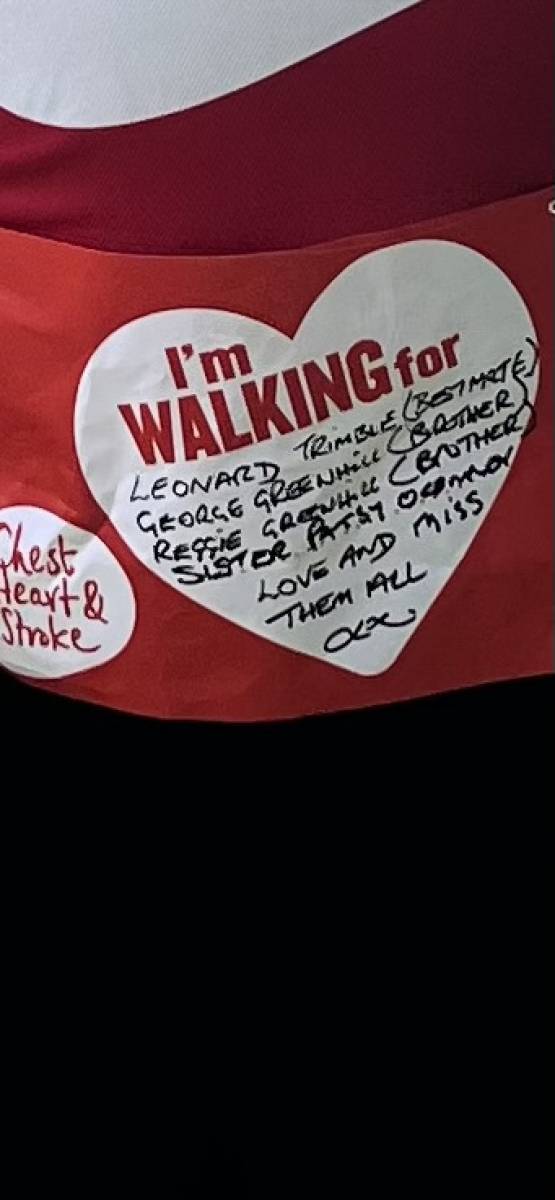 I'm
WALKING for
LEONARD TRIMBLE (BEST MATE)
GEORGE GREENHILL (BROTHER)
REGGIE GREENHILL (BROTHER)
SISTER PATSY
LOVE AND MISS
THEM ALL
Chest
Heart &
Stroke